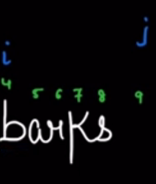 i j
4 5 6 7 8 9
barks